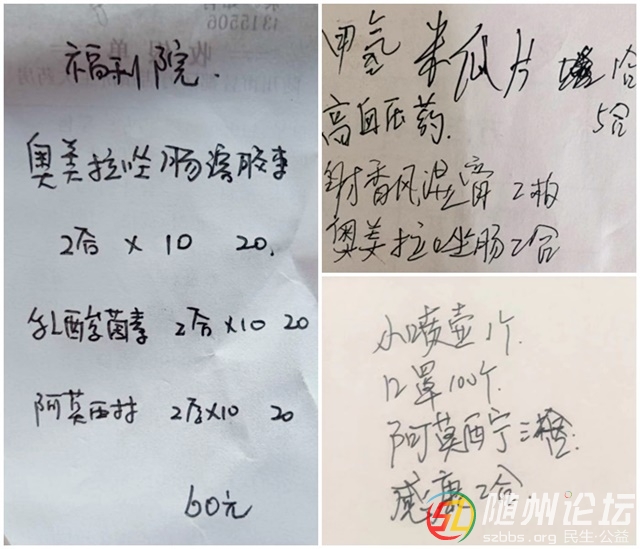 福利院.
奥美拉唑肠溶胶
2合 x 10 20.
乳酸菌素 2合x10 20
阿莫西林 2合x10 20
60元
甲氢 米瓜片 1合
高血压药. 5合
射香风湿膏 2板
奥美拉唑肠2合
小喷壶1个.
口罩100个.
阿莫西宁三
感康2合.
随州论坛
szbbs.org 民生·公益